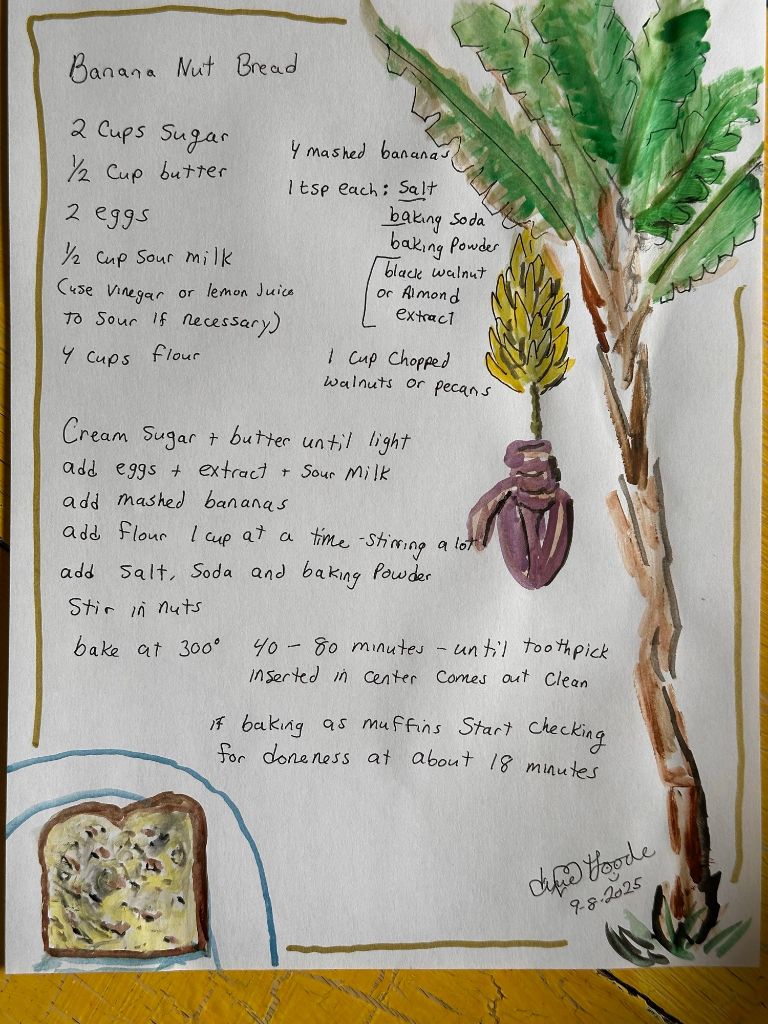 Banana Nut Bread
2 cups sugar
1/2 cup butter
2 eggs
1/2 cup sour milk
(use vinegar or lemon juice
to sour if necessary)
4 cups flour
4 mashed bananas
1 tsp each: salt
baking soda
baking powder
black walnut
or Almond
extract
1 cup chopped
walnuts or pecans
Cream sugar + butter until light
add eggs + extract + sour milk
add mashed bananas
add flour 1 cup at a time - stirring a lot
add salt, soda and baking powder
Stir in nuts
bake at 300° 40 - 80 minutes - until toothpick
inserted in center comes out clean
if baking as muffins start checking
for doneness at about 18 minutes
9-8-2025